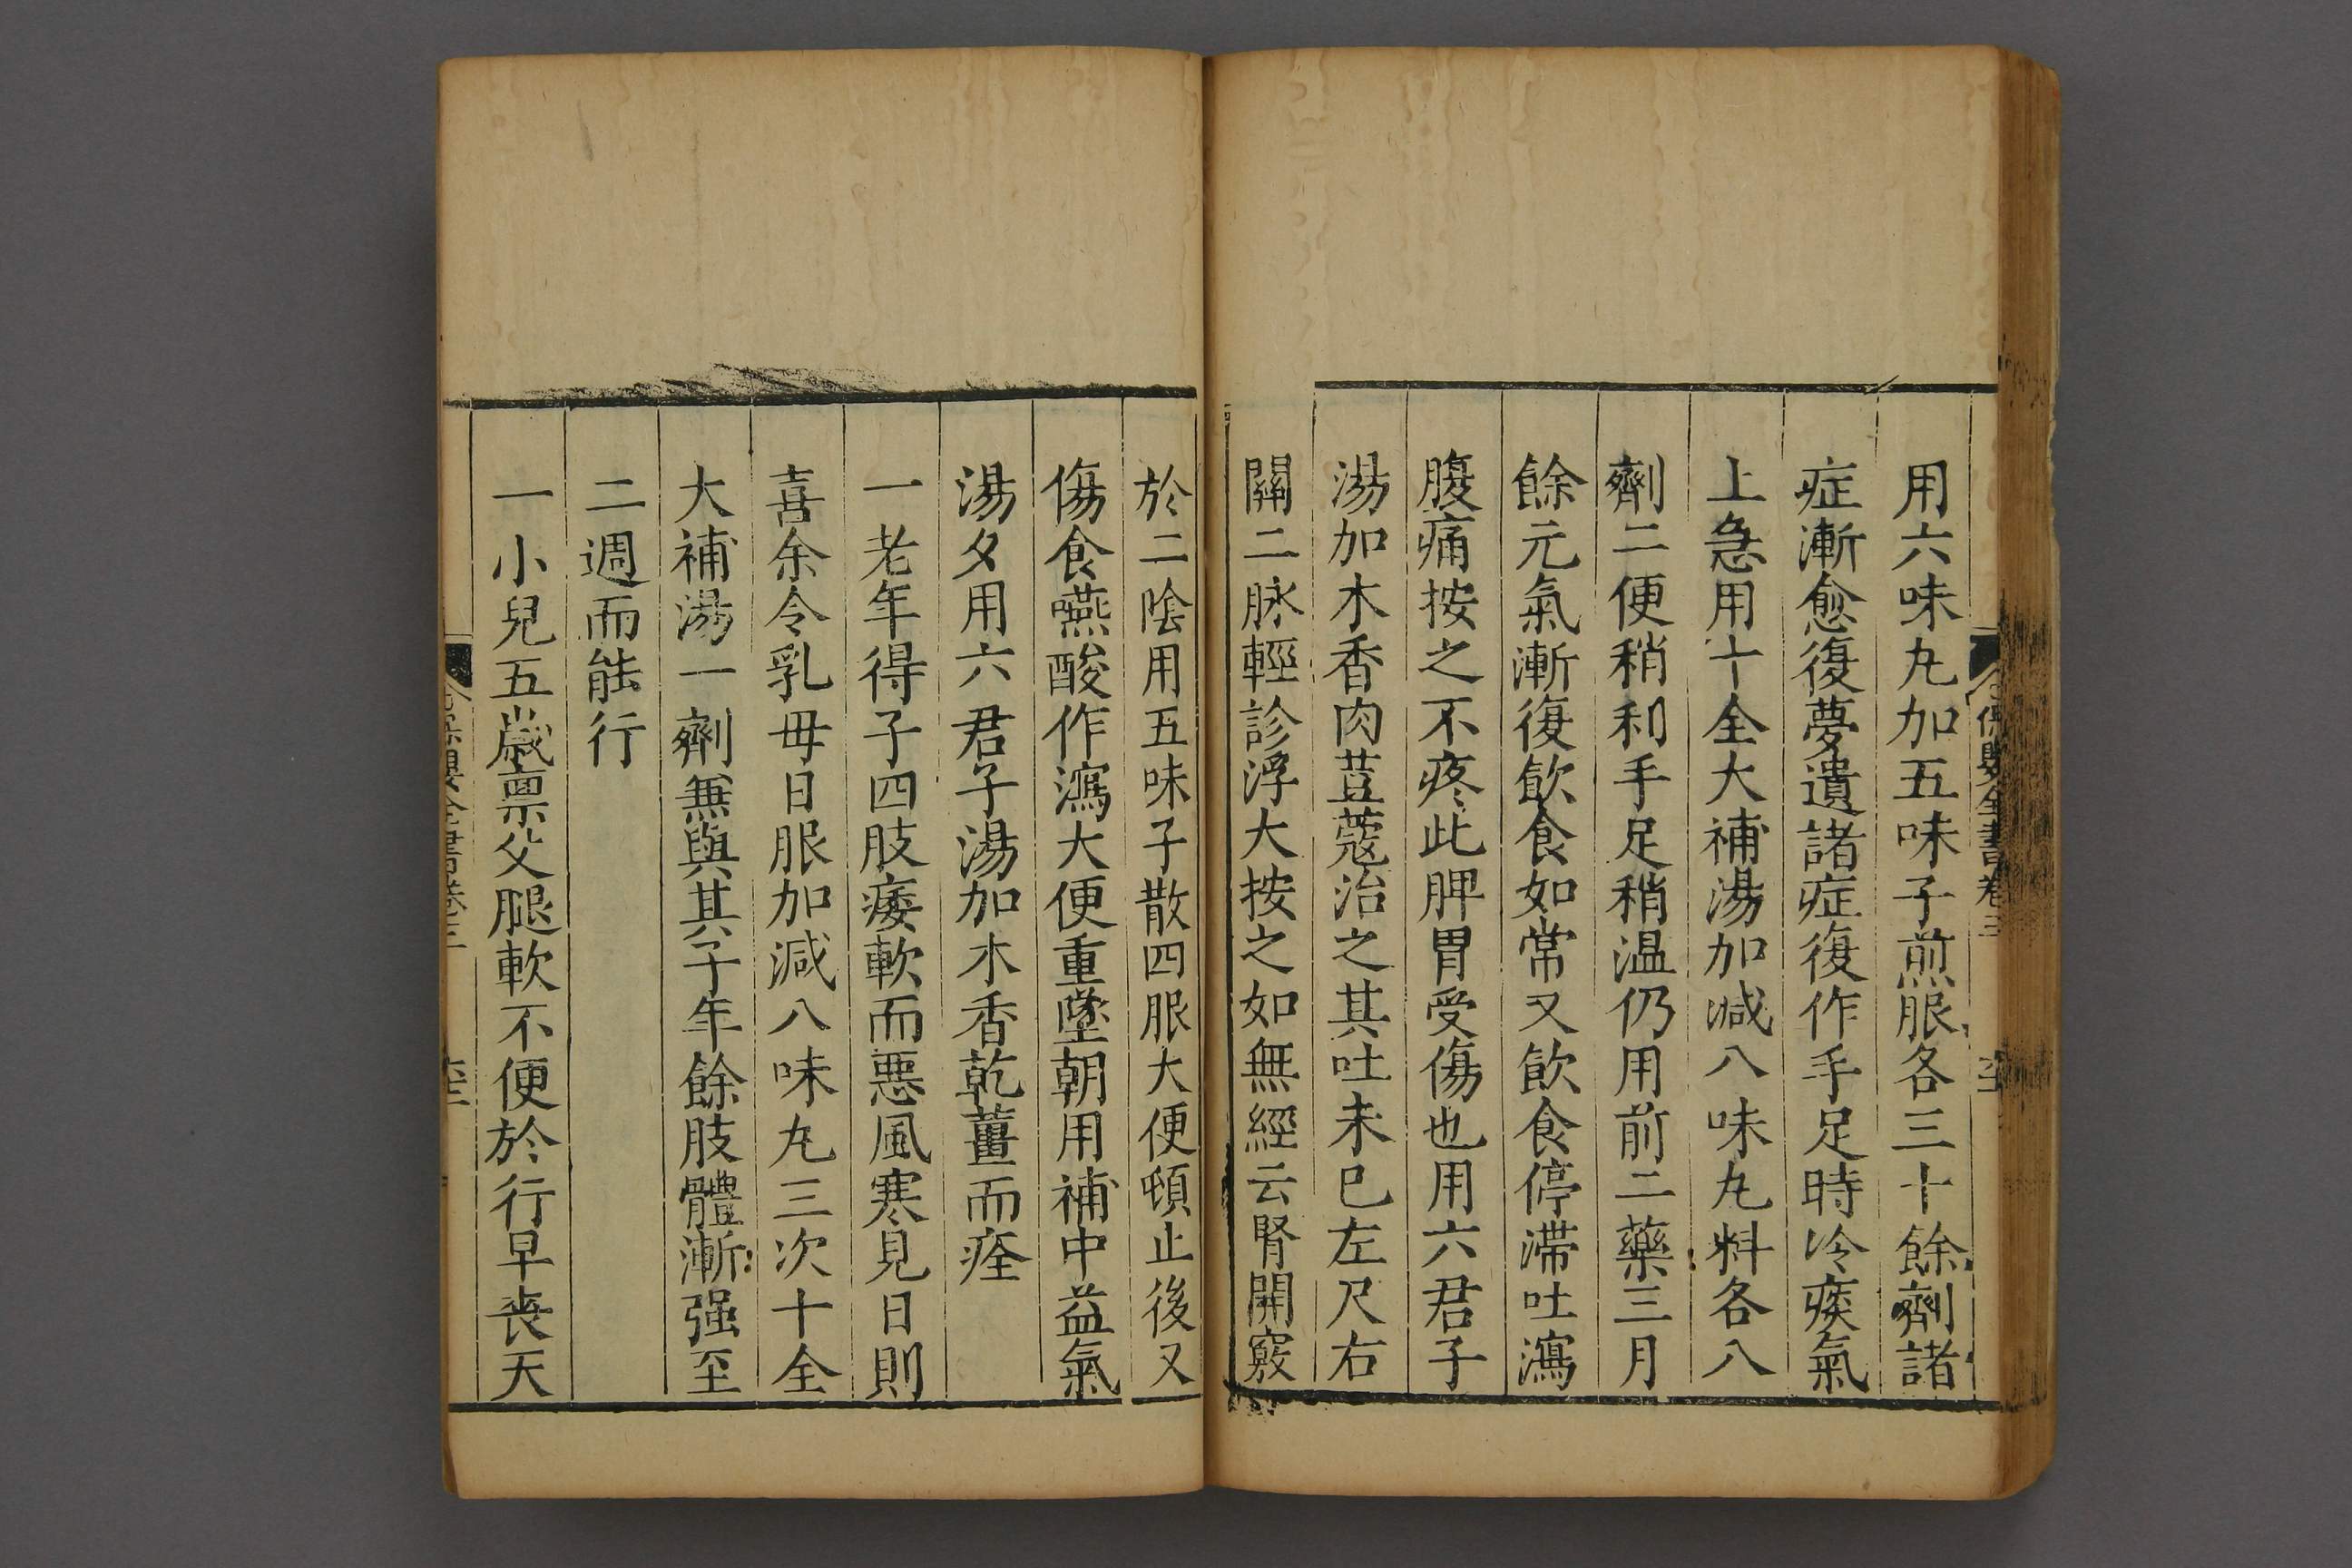 用六味丸加五味子煎服各三十餘劑諸
症漸愈復夢遺諸症復作手足時冷痰氣
上急用十全大補湯加減八味丸料各八
劑二便稍利手足稍温仍用前二藥三月
餘元氣漸復飲食如常又飲食停滯吐瀉
腹痛按之不疼此脾胃受傷也用六君子
湯加木香肉荳蔻治之其吐未已左尺右
關二脉輕診浮大按之如無經云腎開竅
於二陰用五味子散四服大便頓止後又
傷食嚥酸作瀉大便重墜朝用補中益氣
湯夕用六君子湯加木香乾薑而痊
一老年得子四肢痿軟而惡風寒見日則
喜余令乳母日服加減八味丸三次十全
大補湯一劑兼與其子年餘肢體漸强至
二週而能行
一小兒五歲禀父腿軟不便於行早喪天
保嬰全書卷三